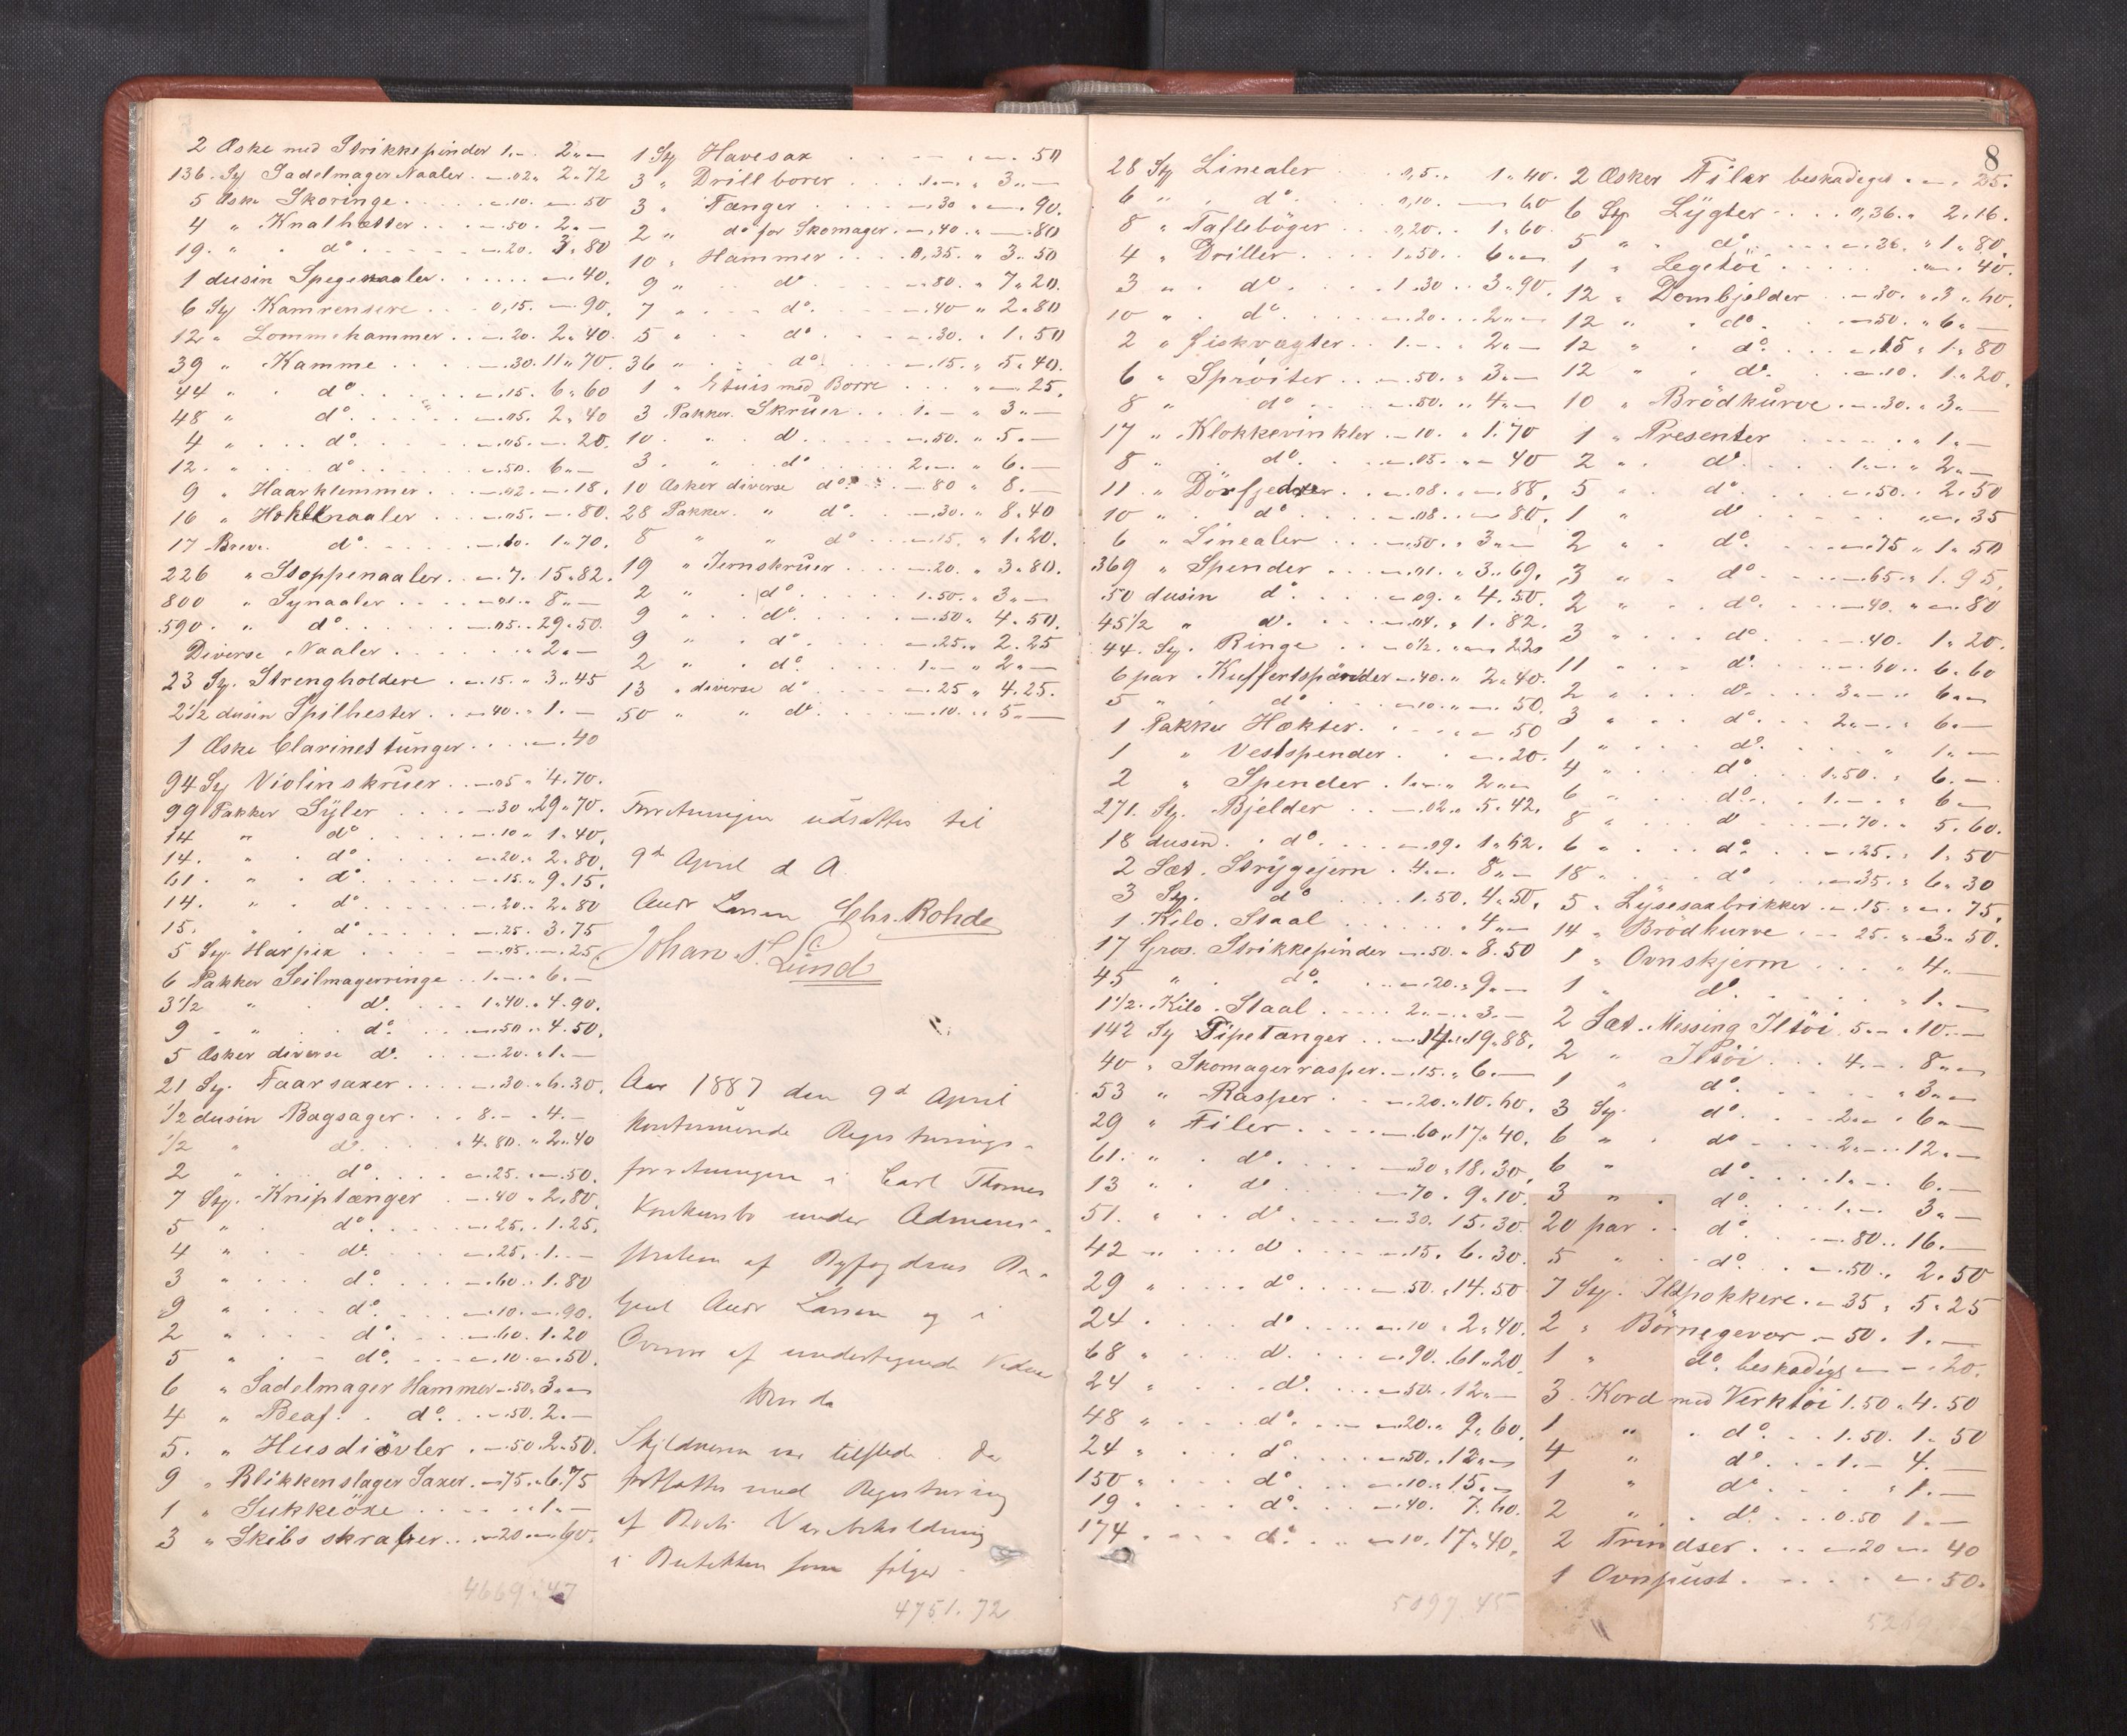 2 Æske med Strikkepinder 1.— 2„—
136 Sy Sadelmager Naaler . —.02„ 2.72
5 Æske Skoringe . . . —.10. —.50
4 „ Knalhætter . . —.50. 2.—
19. „ . do . . . —.20. 3.80
1 dusin Spegenaaler . . . . —.40.
6 Sy Kamrensere . . . 0,15. —.90.
12 „ Lommekammer . . —.20. 2.40.
39 „ Kamme . . . —.30. 11„70.
44 „ . do . . . —.15. 6.60
48 „ do . . . —.05. 2.40
4 „ . . do . . . —.05. —.20.
12. „ . . do . . . —.50. 6„—
9 „ Haarklemmer . . —.02. —.18.
16 „ Hohlnaaler . . . —.05. —.80.
17 Breve. do . . . —.10. 1„70.
226 „ Stoppenaaler . . —.7. 15.82.
800 „ Synaaler . . . —.01. 8„—
590. „ do . . . —.05. 29.50.
Diverse Naaler . . . . „ 2„—
23 Sy. Strengholdere . —.15. „ 3.45
2 1/2 dusin Spilhester . . —.40. „ 1.—
1 Æske Clarinettunger . . . —.40
94 Sy Violinskruer . . —.05 „ 4.70.
99 Pakker Syler . . . —.30 „ 29„70.
14 „ do . . . —.10 „ 1.40.
14. „ . do . . . —.20. „ 2.80.
61. „ . do . . . —.15. „ 9.15.
14. „ . do . . . —.20. 2.80
15. „ . do . . . —.25. 3.75
5 Sy. Harpix . . . —.05. —.25
6 Pakker Seilmagerringe . . 1.—. „ 6.—
3 1/2 „ do. . . 1„40. „ 4.90.
9 „ „ . do. . . —.50 „ 4.50.
5 Æsker diverse do. . . —.20. „ 1.—
21 Sy. Faarsaxer . . . —.30. „ 6.30.
1/2 dusin Bagsager . . . 8.— „ 4.—
1/2 „ do. . . „ 4.80. „ 2.40
2 „ . do . . . —.25. —.50.
7 Sy. Kniptænger . . —.40 „ 2.80.
5 „ . do. . . —.25. 1.25.
4 „ . do. . . —.25. 1.—
3 „ . . do. . . —.60. 1.80
9 „ . . do. . . —.10. —.90.
2 „ . . do. . . —.60. 1.20
5 „ . . do. . . —.10. —.50.
6 „ Sadelmager Hammer —.50. 3.—
4 „ Beaf. . do. . —.50. 2.—
5. „ Husdiövler . —.50. 2.50.
9 „ Blikkenslager Saxer. —.75. „ 6.75
1 „ Sukkeröxe . . . . „ 1.—
3 „ Skibs skraber . . —.20 —.60.
4669.47
1 Sy Havesax . . . . . —. 50
3 „ Drillborer . . . 1.— „ 3.—
3 „ Tænger . . . —.30 „ —.90.
2 „ do for Skomager . —.40. „ —.80
10 „ Hammer . . . 0,35. „ 3.50
9 „ . . do . . . —.80. „ 7.20.
7 „ . . do. . . —.40 „ 2.80
5 „ . . do . . . —.30. „ 1.50
36 „ . . do. . . —.15. „ 5.40.
1 „ Etuis med Borre . . . „ —.25.
3 Pakker Skruer . . 1.— „ 3„—
10. „ . do . . . —.50. „ 5.—
3. „ . do . . . 2.—. „ 6.—
10 Æsker diverse do. . —.80 „ 8.—
28 Pakker. „ do. . —.30. „ 8.40
8 „ „ do . —.15. „ 1.20.
19 „ Jernskruer . . —.20. „ 3.80.
2 „ . do . . . 1.50. „ 3„—
9 „ . do . . . —.50 „ 4.50.
9 „ . do . . . —.25. „ 2.25
2 „ . do. . . 1.— „ 2„—
13 „ diverse do . . —.25 „ 4.25.
50 „ „ do. . . —.10. „ 5.—
Forretningen udsættes til
9de April d A.
Andr Larsen Chr. Rohde
Johan P. Lund
Aar 1887 den 9de April
kontinuerede Registrerings-
forretningen i Carl Thomes
Konkursbo under Admini-
stration af Byfogdens
Andr Larsen og i
Overvær af undertegnede Vidner
Hvorda
Skyldneren var tilstede. Da
fortsattes med Registrering
af Boets Varebeholdning
i Butikken som følger
4751.72
8
28 Sy Linealer . . 0,5. . 1.40.
6 „ . do. . . 0,10. —.60
8 „ Taflebøger . . 0,20. . 1.60.
4 „ Driller . . . 1.50. . 6„—
3 „ . do . . . 1.30 . . 3.90.
10 „ . do . . . —.20. . 2„—
2 „ Fiskvægter . . 1.—. „ 2.—
6 „ Sprøiter . . —.50. „ 3.—
8 „ do . . —.50. „ 4„—
17 „ Klokkevinkler . —.10. „ 1.70
8 „ do. . . —.05. „ —.40
11. „ Dörfjedrer . . —.08. „ —.88.
10 „ . do . . . —.08. . —.80.
6 „ Linealer . . —.50. „ 3„—
369 „ Spender . . . —.01. „ 3.69.
50 dusin do . . . —.09. „ 4.50.
45 1/2 „ do . . . —.04. „ 1.82.
44. Sy. Ringe . . —.0 1/2. „ —.22
6 par Kuffertspänder —.40. „ 2.40.
5 „ . do . . . —.10. „ —.50.
1 Pakke Hækter. . . . —.50
1 „ Vestspender . . . —.20.
2 „ Spender . 1.—. „ 2„—
271. Sy. Bjelder . . —.02. „ 5.42.
18 dusin . do. . . —.09. 1.62.
2 Sæt. Strygejern . 4.—. 8„—
3 Sy. do . . . 1.50. 4.50.
1 Kilo. Staal . . . . . 4„—
17 Gros. Strikkepinder —.50. „ 8.50
45 „ . do. . . —.20. „ 9.—
1 1/2. Kilo. Staal . . . 2.—. „ 3.—
142 Sy Pipetænger . . —.14. „ 19.88.
40 „ Skomagerrasper. —.15. „ 6.—
53 „ Rasper . . —.20. „ 10.60.
29 „ Filer . . . —.60. „ 17.40.
61. „ . do. . . —.30 „ 18.30.
13 „ . do . . . —.70 . 9.10.
51. „ . do. . . —.30. 15.30.
42 „ . . do . . . —.15. 6.30.
29 „ . . do . . . —.50. „ 14.50
24 . . . do . . . —.10 „ 2.40.
68 „ . . do. . . —.90. . 61.20
24 „ . . do. . . —.50. . 12.—
48 „ . . do. . . —.20. „ 9.60.
24 „ . . do . . . —.50. . 12.—
150 „ . . do . . . —.10. „ 15.—
19 „ . . do. . . —.40. 7.60.
174 „ . . do. . . —.10. 17.40.
5097.45
2 Æsker Filer beskadiget . —. 25.
6 Sy Lygter . . . 0,36. „ 2.16.
5 „ . do. . . —.36. „ 1.80.
1 „ Legetöi . . . . —.40.
12 „ Dombjelder . —.30. „ 3.60.
12 „ . do. . —.50. „ 6.—
12 „ . do. . . —.15 „ 1.80
12 „ . do. . . —.10. 1.20.
10 „ Brödkurve . —.30. „ 3.—
1 „ Presenter . . . . „ 1.—
2 „ . do. . . 1.—. „ 2„—
5 „ . do . . . —.50. . 2.50
1 „ do . . . . „ —.35
2 „ . do. . . —.75 „ 1.50
3 „ . do . . . —.65. „ 1.95.
2 „ . do. . . —.40. „ —.80
3 „ . . do . . . —.40. 1.20.
11 „ . . do. . . —.60. . 6.60
2 „ . . do. . . 3.—. „ 6.—
3 „ . . do. . . 2.—. „ 6.—
1 „ . . do. . . . „ 1.—
4 „ . . do . . 1.50. „ 6.—
6 „ . . do. . . 1.—. „ 6—
8 „ . . do . . . —.70. „ 5.60.
6 „ . . do. . . —.25. „ 1.50
18 „ . . do . . . —.35. „ 6.30
5 „ Lysesaxbrikker . —.15. „ —.75.
14 „ Brödkurve . . 25. „ 3.50.
1 „ Ovnskjerm . . . „ 4.—
1 „ do. . . . . „ 1.—
2 Sæt. Messing Ildtöi 5.— „ 10.—
2 „ Ildtöi . . . 4.—. „ 8.—
1 „ do. . . . . „ 3„—
3 Sy. do . . . 2.— „ 6„—
6 „ . do . . . 2.—. 12.—
6 „ do . . . 1.—. 6.—
3 „ . do. . . 1.—. 3.—
20 par . . do. . . —.80. . 16.—
5 „ . do. . . —.50. . 2.50
7 Sy. Ildpokkere . —.35 „ 5.25
2 „ Börnegevær —.50. 1.—
1 „ do. beskadigs — —.20.
3 Kord med Verktöi 1.50 „ 4.50
1 „ . do. . 1.50. 1.50
4 „ do . . . 1.— 4.—
1 „ do . . . „ 1.—
2 „ . do. . . 0.50 1.—
2 Trindser . . . —.20 —.40
1 Ovnpust . . . . . —.50.